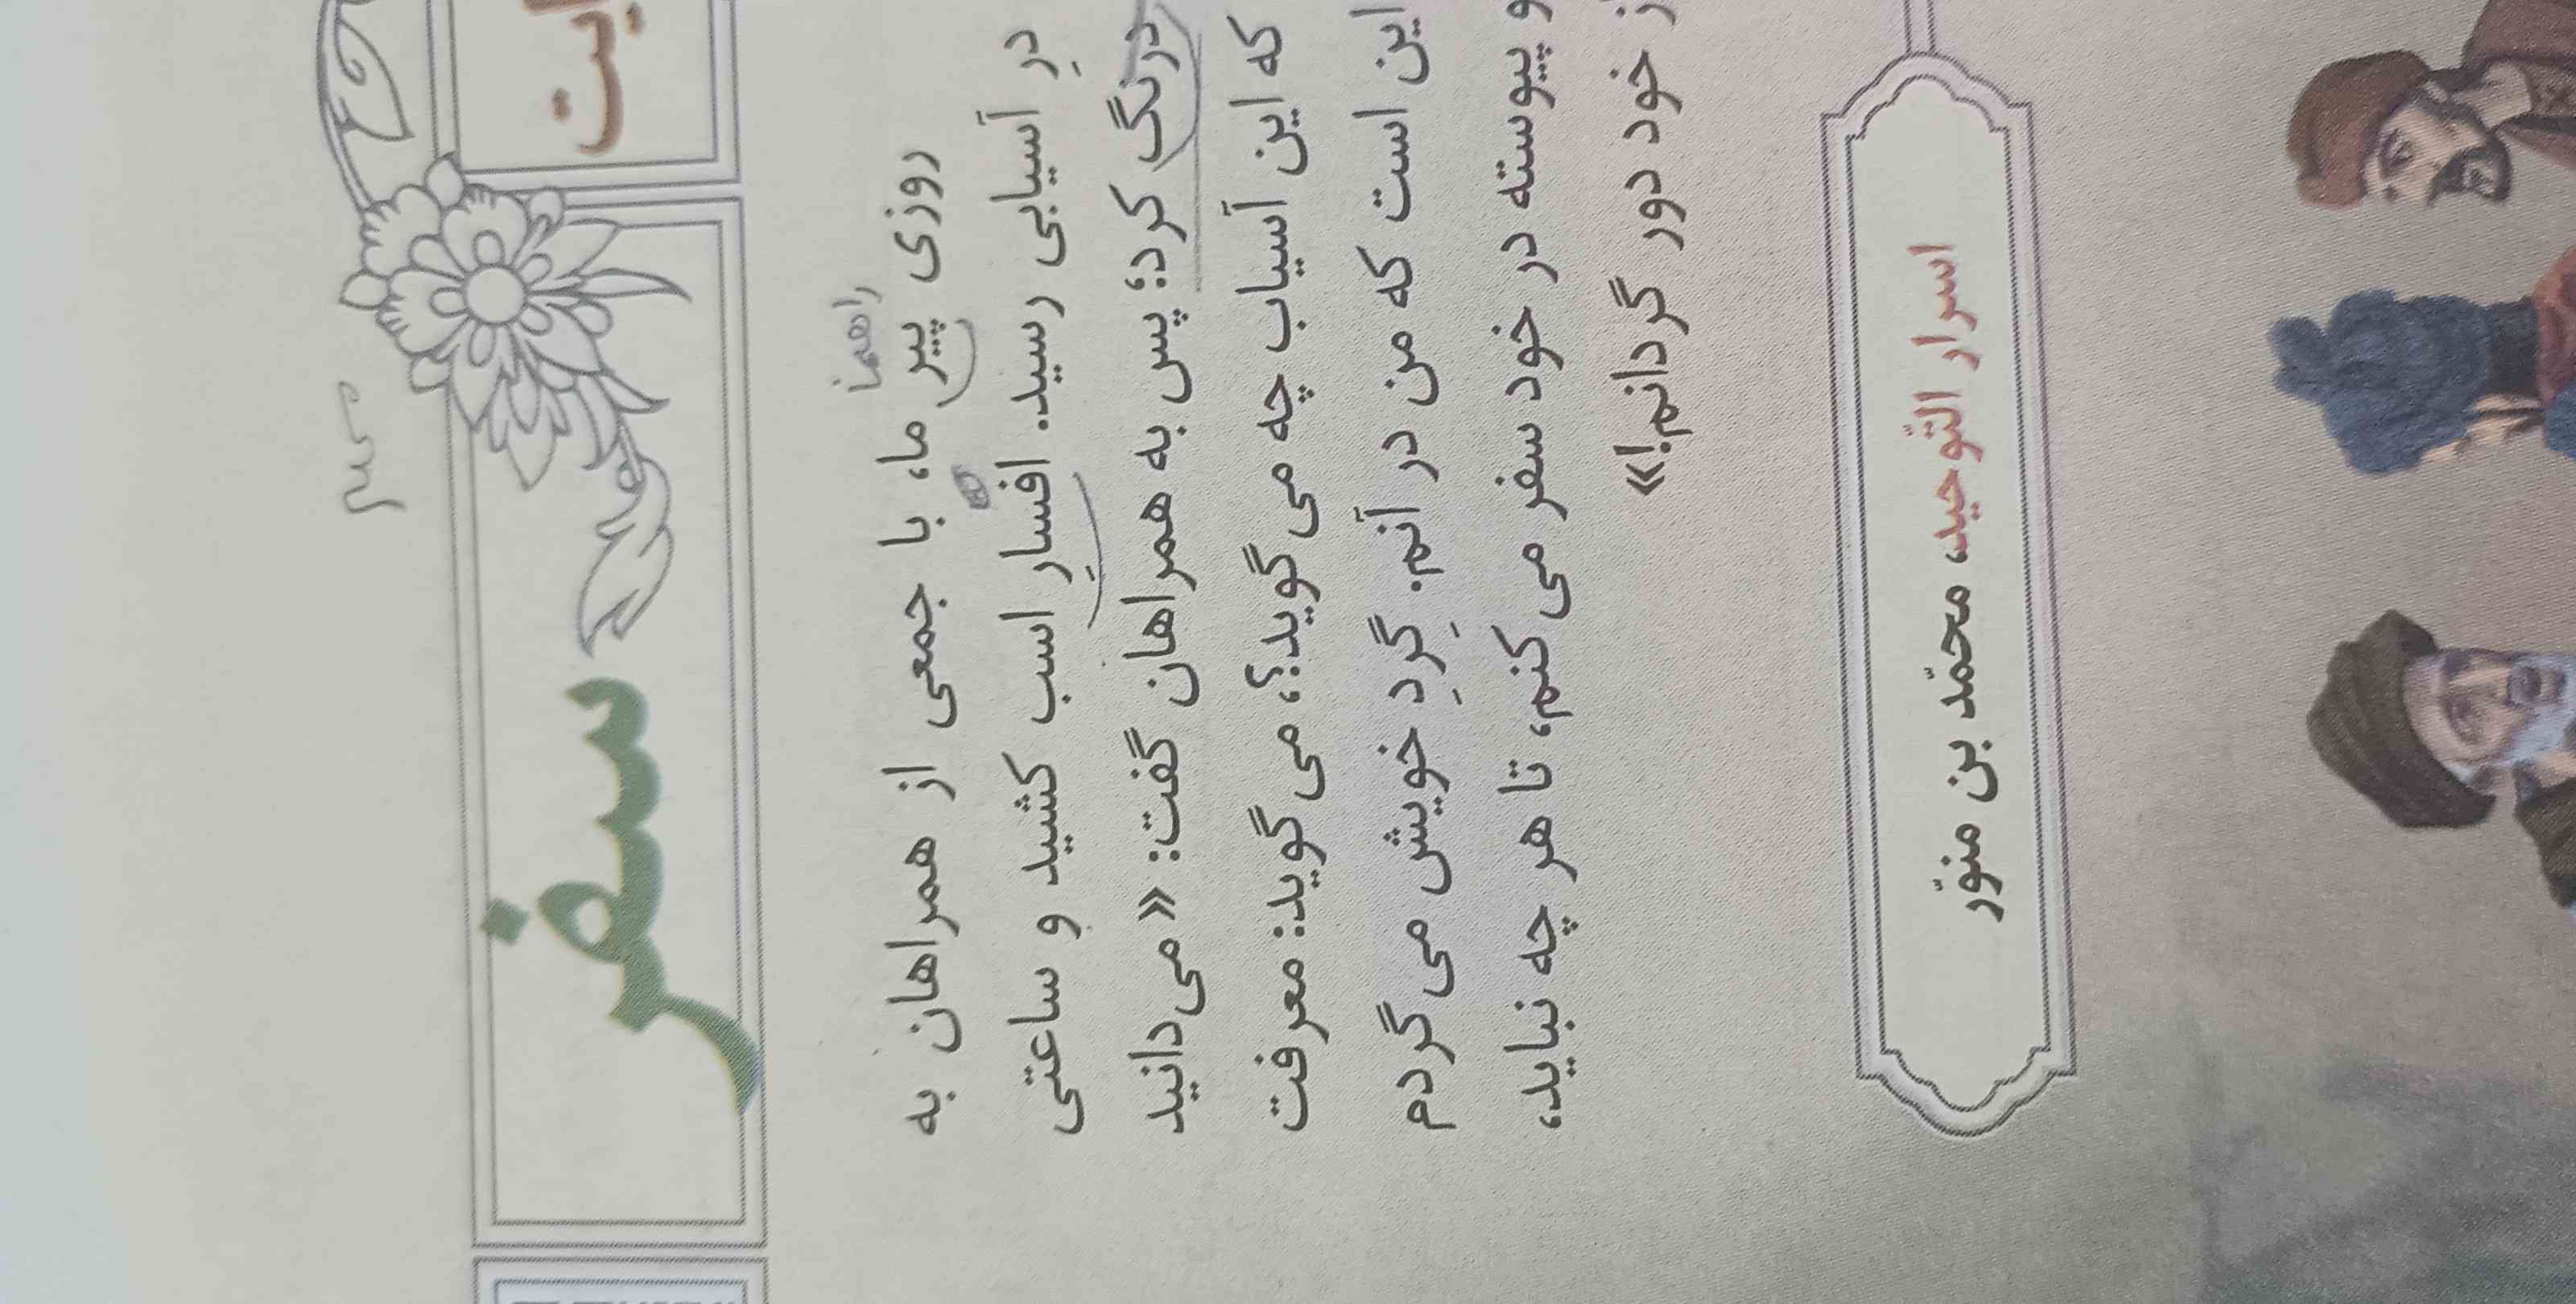 سفر
راهنما
روزی پیر ما، با جمعی از همراهان به
درِ آسیابی رسید. افسارِ اسب کشید و ساعتی
درنگ کرد؛ پس به همراهان گفت: «می‌دانید
که این آسیاب چه می‌گوید؟، می‌گوید: معرفت
این است که من در آنم. گِردِ خویش می‌گردم
و پیوسته در خود سفر می‌کنم، تا هر چه نباید،
از خود دور گردانم!»
اسرار التّوحید، محمّد بن منوّر